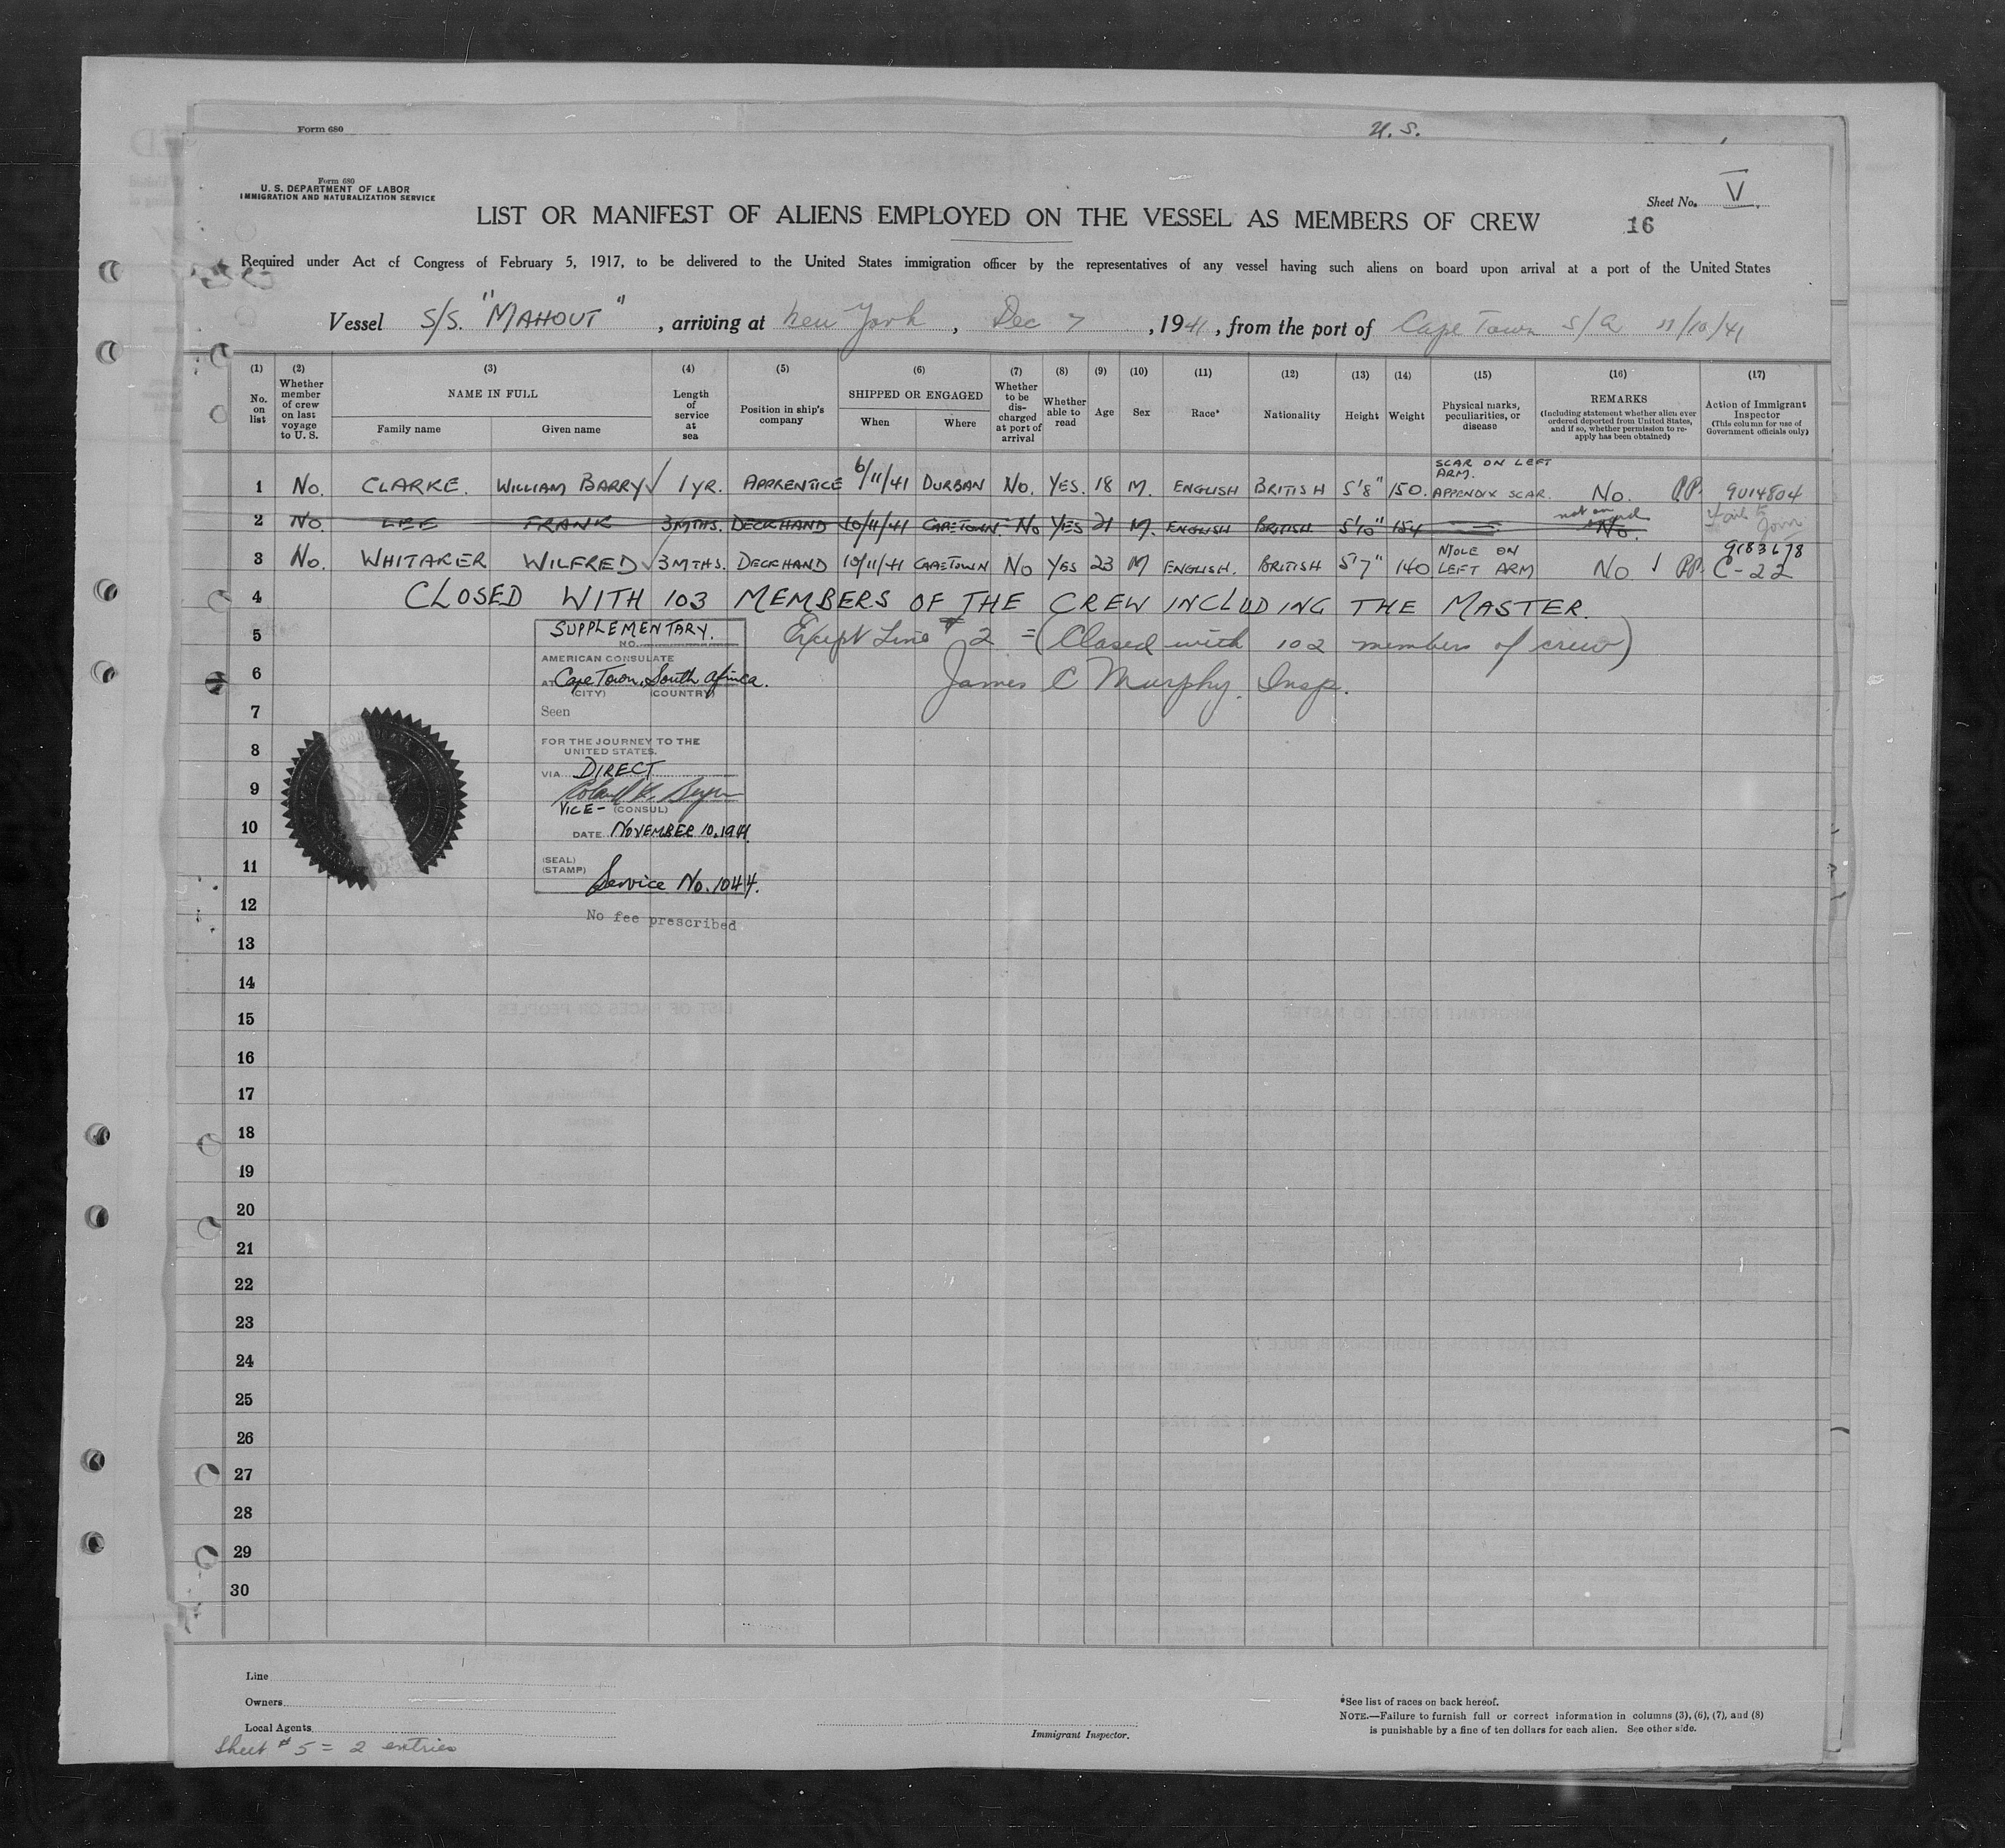 Form 680
U. S.
Form 680
U. S. DEPARTMENT OF LABOR
IMMIGRATION AND NATURALIZATION SERVICE
Sheet No. V
16
LIST OR MANIFEST OF ALIENS EMPLOYED ON THE VESSEL AS MEMBERS OF CREW
Required under Act of Congress of February 5, 1917, to be delivered to the United States immigration officer by the representatives of any vessel having such aliens on board upon arrival at a port of the United States
Vessel S/S. "MAHOUT", arriving at New York, Dec 7, 1941, from the port of Cape Town S/A 11/10/41
(1) (2) (3) (4) (5) (6) (7) (8) (9) (10) (11) (12) (13) (14) (15) (16) (17)
No. on list
Whether member of crew on last voyage to U. S.
NAME IN FULL
Family name
Given name
Length of service at sea
Position in ship's company
SHIPPED OR ENGAGED
When
Where
Whether to be discharged at port of arrival
Whether able to read
Age
Sex
Race*
Nationality
Height
Weight
Physical marks, peculiarities, or disease
REMARKS
(Including statement whether alien ever ordered deported from United States, and if so, whether permission to re-apply has been obtained)
Action of Immigrant Inspector
(This column for use of Government officials only)
1 No. CLARKE. WILLIAM BARRY √ 1 YR. APPRENTICE 6/11/41 DURBAN No. YES. 18 M. ENGLISH BRITISH 5'8" 150. SCAR ON LEFT ARM. APPENDIX SCAR. No. PP. 9014804
2 No. LEE FRANK 3 MTHS. DECKHAND 10/11/41 CAPETOWN. No YES 21 M. ENGLISH BRITISH 5'10" 154 — not on board No. Fail to Join
3 No. WHITAKER WILFRED √ 3 MTHS. DECKHAND 10/11/41 CAPETOWN No YES 23 M ENGLISH. BRITISH 5'7" 140 MOLE ON LEFT ARM No. √ PP. 9183678 C-22
4 CLOSED WITH 103 MEMBERS OF THE CREW INCLUDING THE MASTER.
5 Except Line # 2 = (Closed with 102 members of crew)
6 James C Murphy. Insp.
SUPPLEMENTARY.
NO.
AMERICAN CONSULATE
AT Cape Town, South Africa.
(CITY) (COUNTRY)
7 Seen
8 FOR THE JOURNEY TO THE
UNITED STATES.
VIA DIRECT
9
VICE- (CONSUL)
10 DATE NOVEMBER 10, 1941.
11 (SEAL)
(STAMP)
Service No. 1044.
12 No fee prescribed
13
14
15
16
17
18
19
20
21
22
23
24
25
26
27
28
29
30
Line
Owners
Local Agents
Sheet # 5 = 2 entries
Immigrant Inspector.
*See list of races on back hereof.
NOTE.—Failure to furnish full or correct information in columns (3), (6), (7), and (8)
is punishable by a fine of ten dollars for each alien. See other side.